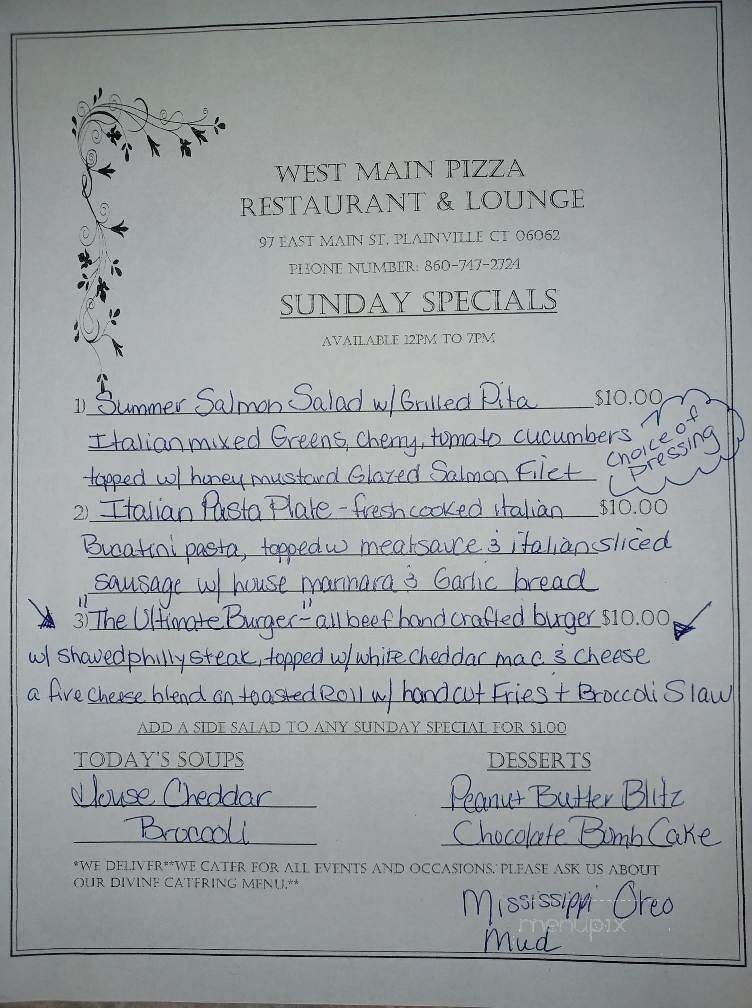 WEST MAIN PIZZA
RESTAURANT & LOUNGE
97 EAST MAIN ST, PLAINVILLE CT 06062
PHONE NUMBER: 860-747-2724
SUNDAY SPECIALS
AVAILABLE 12PM TO 7PM
1) Summer Salmon Salad w/ Grilled Pita $10.00
Italian mixed Greens, Cherry, tomato cucumbers
topped w/ honey mustard Glazed Salmon Filet
Choice of
Dressing
2) Italian Pasta Plate - fresh cooked italian $10.00
Bucatini pasta, topped w meatsauce & italian sliced
sausage w/ house marinara & Garlic bread
3) "The Ultimate Burger" - all beef hand crafted burger $10.00
w/ shaved philly steak, topped w/ white cheddar mac & cheese
a five cheese blend on toasted Roll w/ handcut Fries + Broccoli Slaw
ADD A SIDE SALAD TO ANY SUNDAY SPECIAL FOR $1.00
TODAY'S SOUPS DESSERTS
House Cheddar Peanut Butter Blitz
Broccoli Chocolate Bomb Cake
*WE DELIVER**WE CATER FOR ALL EVENTS AND OCCASIONS. PLEASE ASK US ABOUT
OUR DIVINE CATERING MENU.**
Mississippi Oreo
Mud
menupix